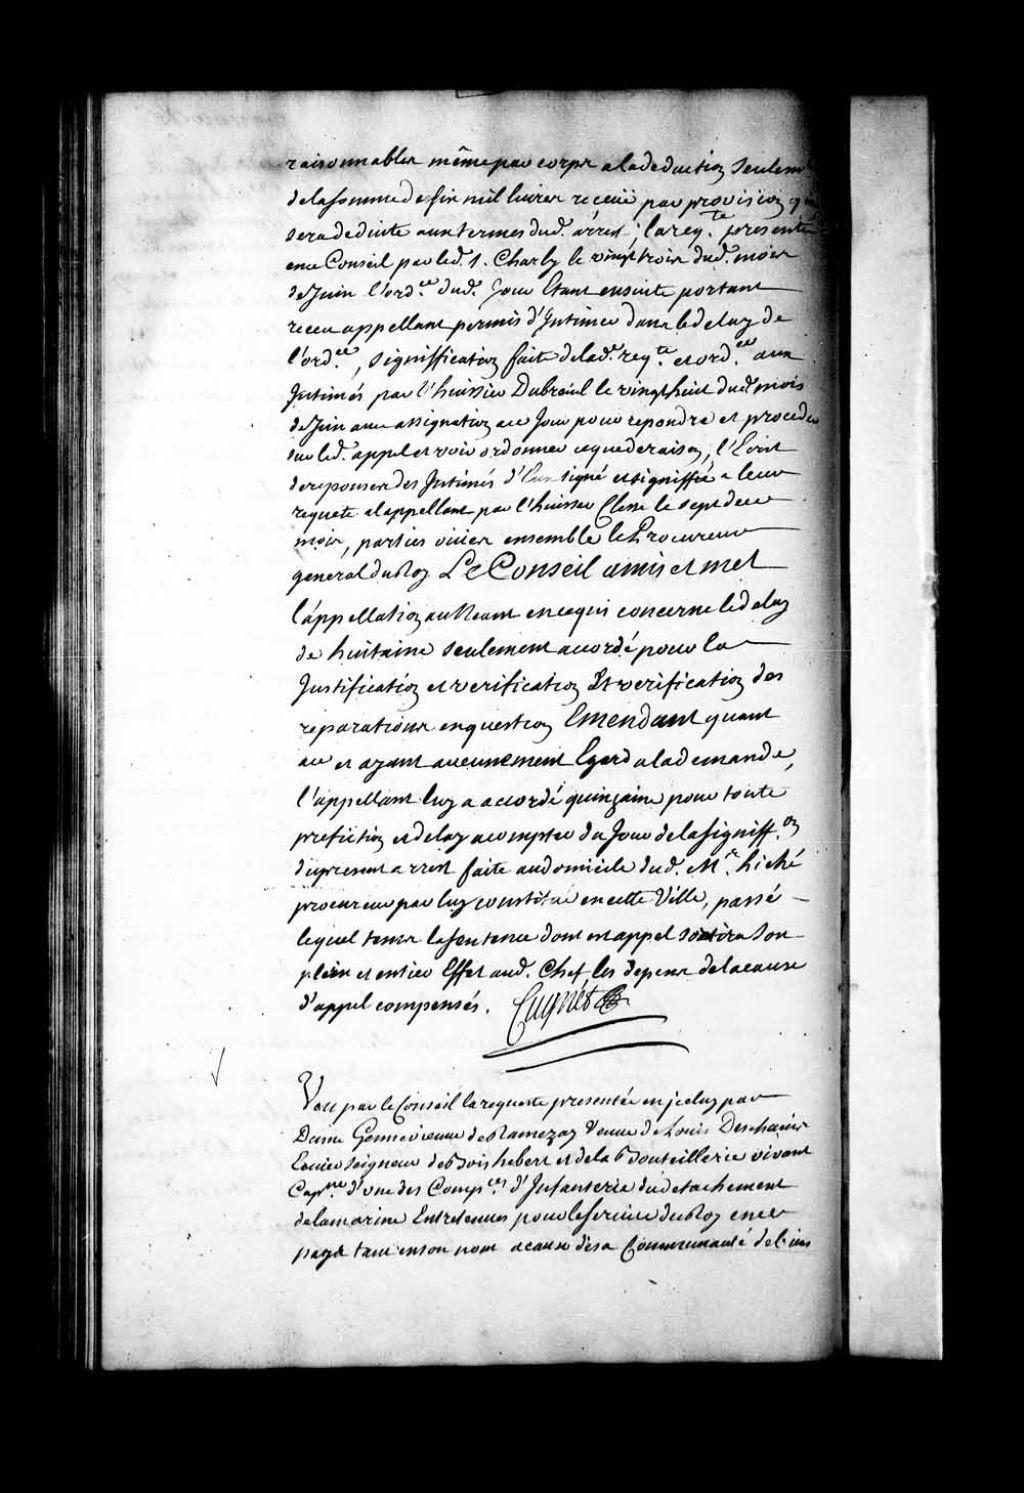 raisonnables même par corps a la deduction Seulem
de la somme de six mil livres receüe par provision q
sera deduite aux termes dud. arrest; la req.te presentée
en ce Conseil par led. s. Charly le vingt trois dud. mois
de Juin l'ord.ce dud. Jour Etant ensuite portant
receu appellant permis d'Intimer dans le delay de
l'ord.ce, signiffication faite de lad. req.te et ord.ce aux
Intimés par l'huissier Dubreüil le vingt huit dud. mois
de Juin avec assignation au Jour pour repondre et proceder
sur led. appel et voir ordonner ce que de raison, l'Ecrit
de reponses des Intimés d'Eux signé et signiffié a leur
requete a l'appellant par l'huissier Clesse le sept de ce
mois, parties ouïes ensemble le Procureur
general du Roy Le Conseil a mis et met
l'appellation au Neant en ce qui concerne le delay
de huitaine seulement accordé pour la
Justification et verification Et verification des
reparations en question Emendant quant
a ce et ayant aucunement Egard a la demande,
l'appellant luy a accordé quinzaine pour toute
prefiction et delay a compter du Jour de la signiff.on
du present arrest faite au domicile dud. M.e hiché
procureur par luy constitué en cette Ville, passé
lequel tems la sentence dont est appel sortira son
plein et entier Effet aud. Chef les depens de la cause
d'appel compensés. Cugnet
Veu par le Conseil la requeste presentée en jceluy par
Dame Genneviesve de Ramezay Veuve de Louis Deschaires
Ecuier seigneur de Boishebert et de la Bouteillerie vivant
Capne. d'une des Comp.es d'Infanterie du detachement
de la marine Entretenues pour le service du Roy en ce
pays tant en son nom a cause de sa Communauté de biens